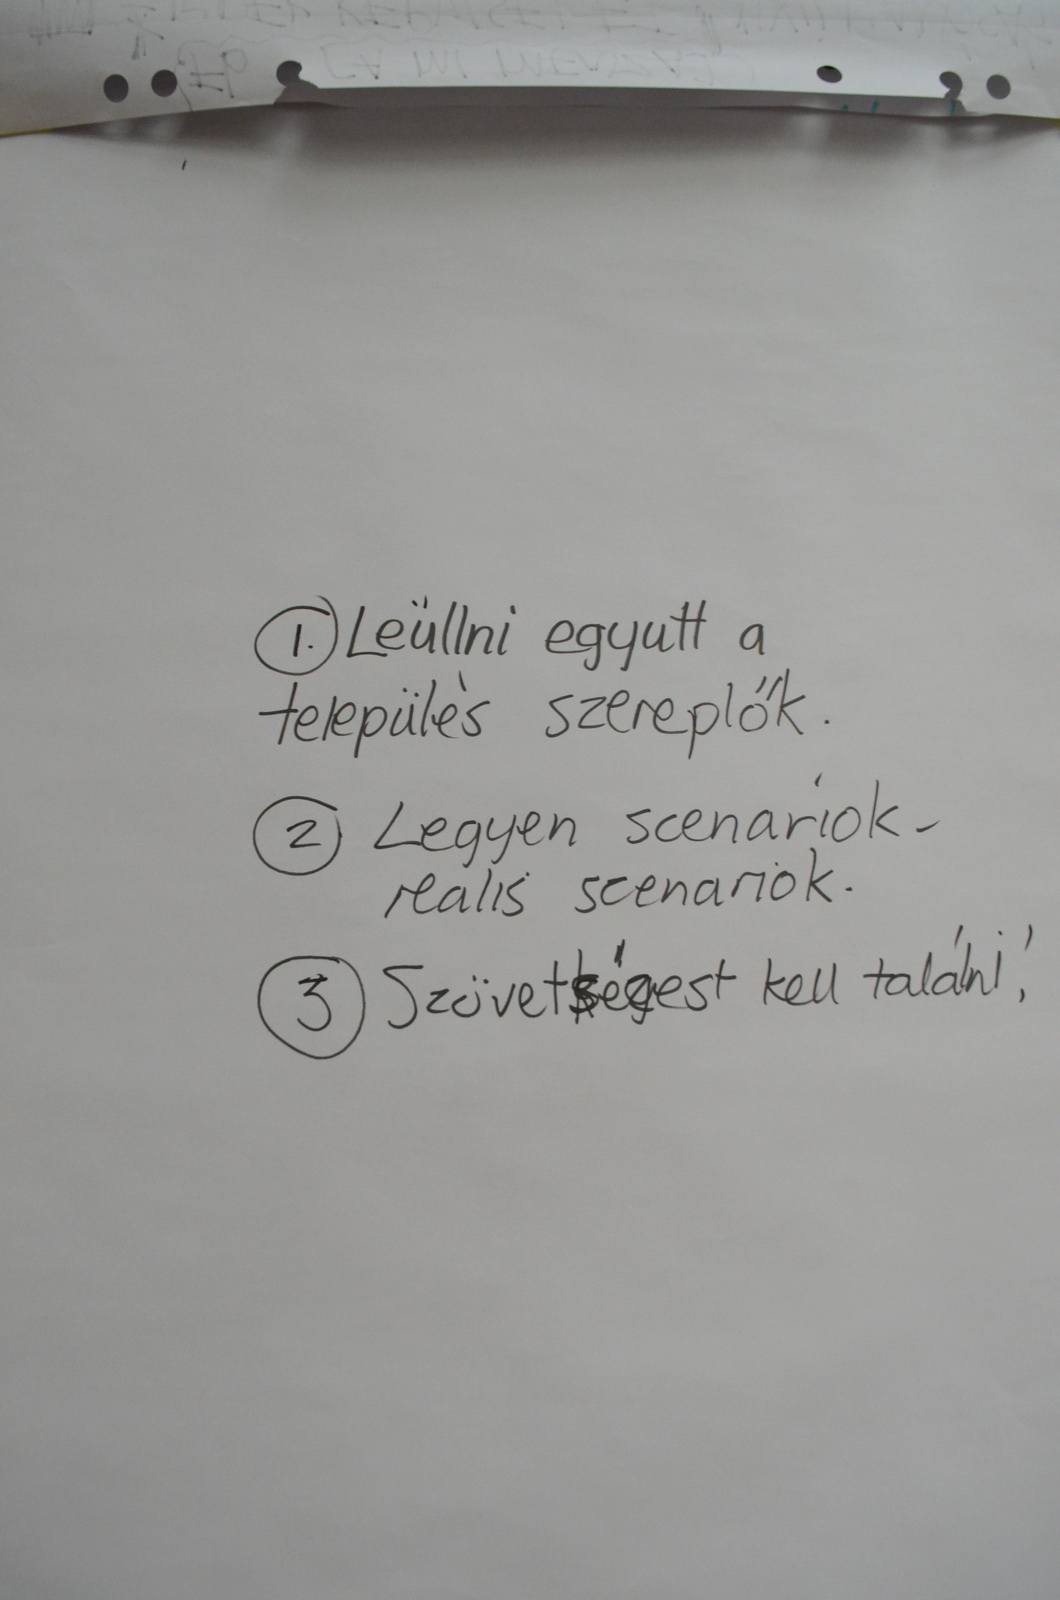 1. Leüllni egyutt a
település szereplők.
2 Legyen scenáriok -
realis scenariok.
3 Szövetségest kell találni!